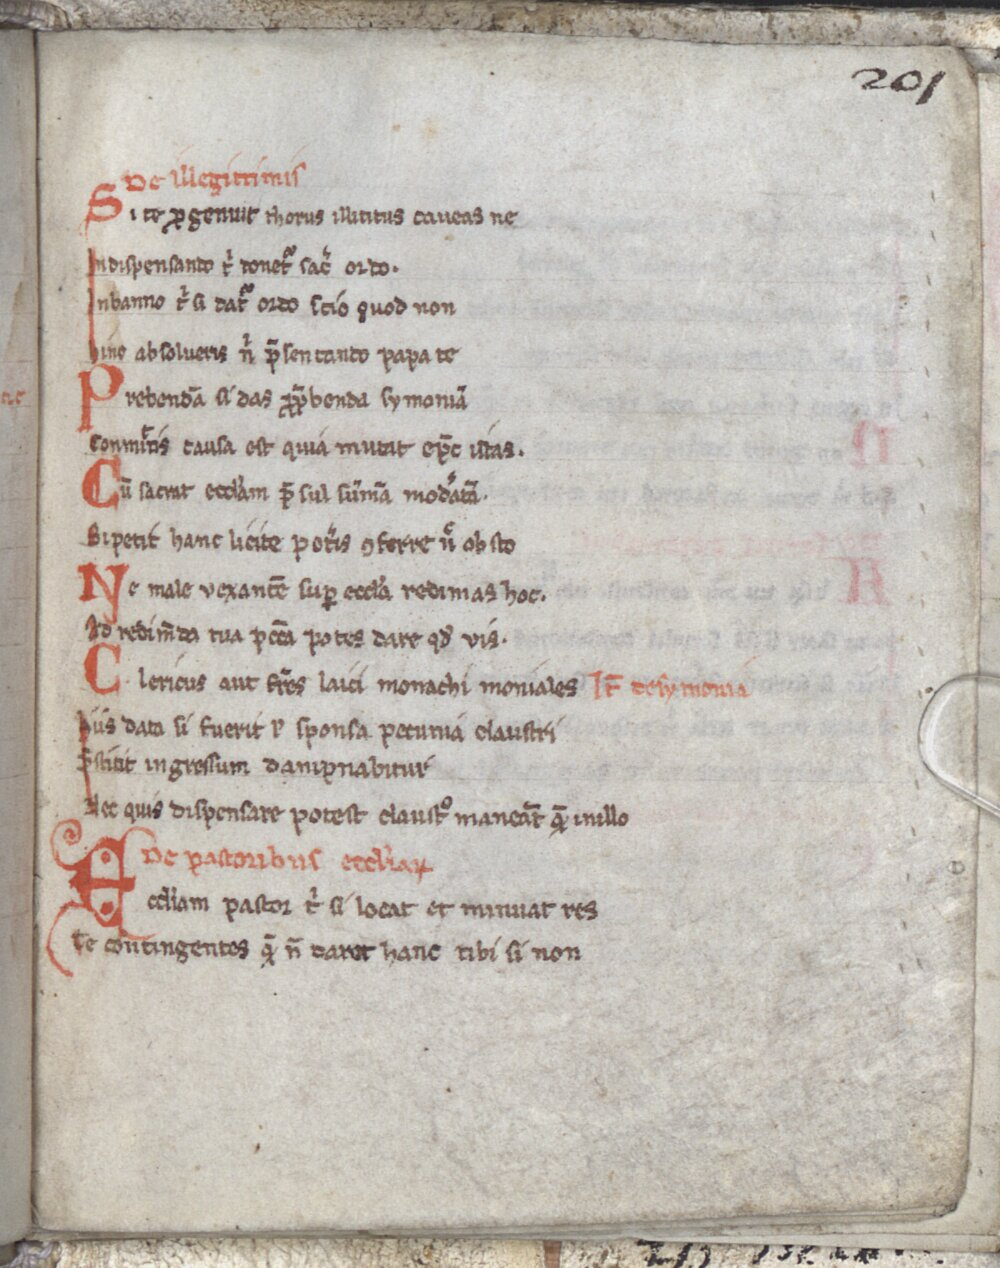 201
De illegittimis
Si te ꝓgenuit thorus illititus caveas ne
Indispensando t͛ donet᷑ sac͛ ordo.
In banno t͛ si dat᷑ ordo scio quod non
hinc absolveris n͛ p̄sentando papa te
Prebendā si das prebenda symoniā
est quia mutat
Cū sacrat eccl̄am p̄sul sūmā
Si petit hanc licite pot͛is ꝯferre n̄ obsto
Ne male vexantē suꝑ eccl̄a redimas hoc.
Ad redim̄da tua pctā potes dare qd̄ vis.
Clericus aut fr̄es laici monachi moniales It̄ de symonia
hiis data si fuerit ł sponsa pecunia claustri
p̄stitit ingressum dampnabitur
Nec quis dispensare potest claustᵒ maneat᷑ in illo
De pastoribus eccl̄iaꝝ
Eccl̄iam pastor t͛ si locat et minuat res
Te contingentes n̄ daret hanc tibi si non